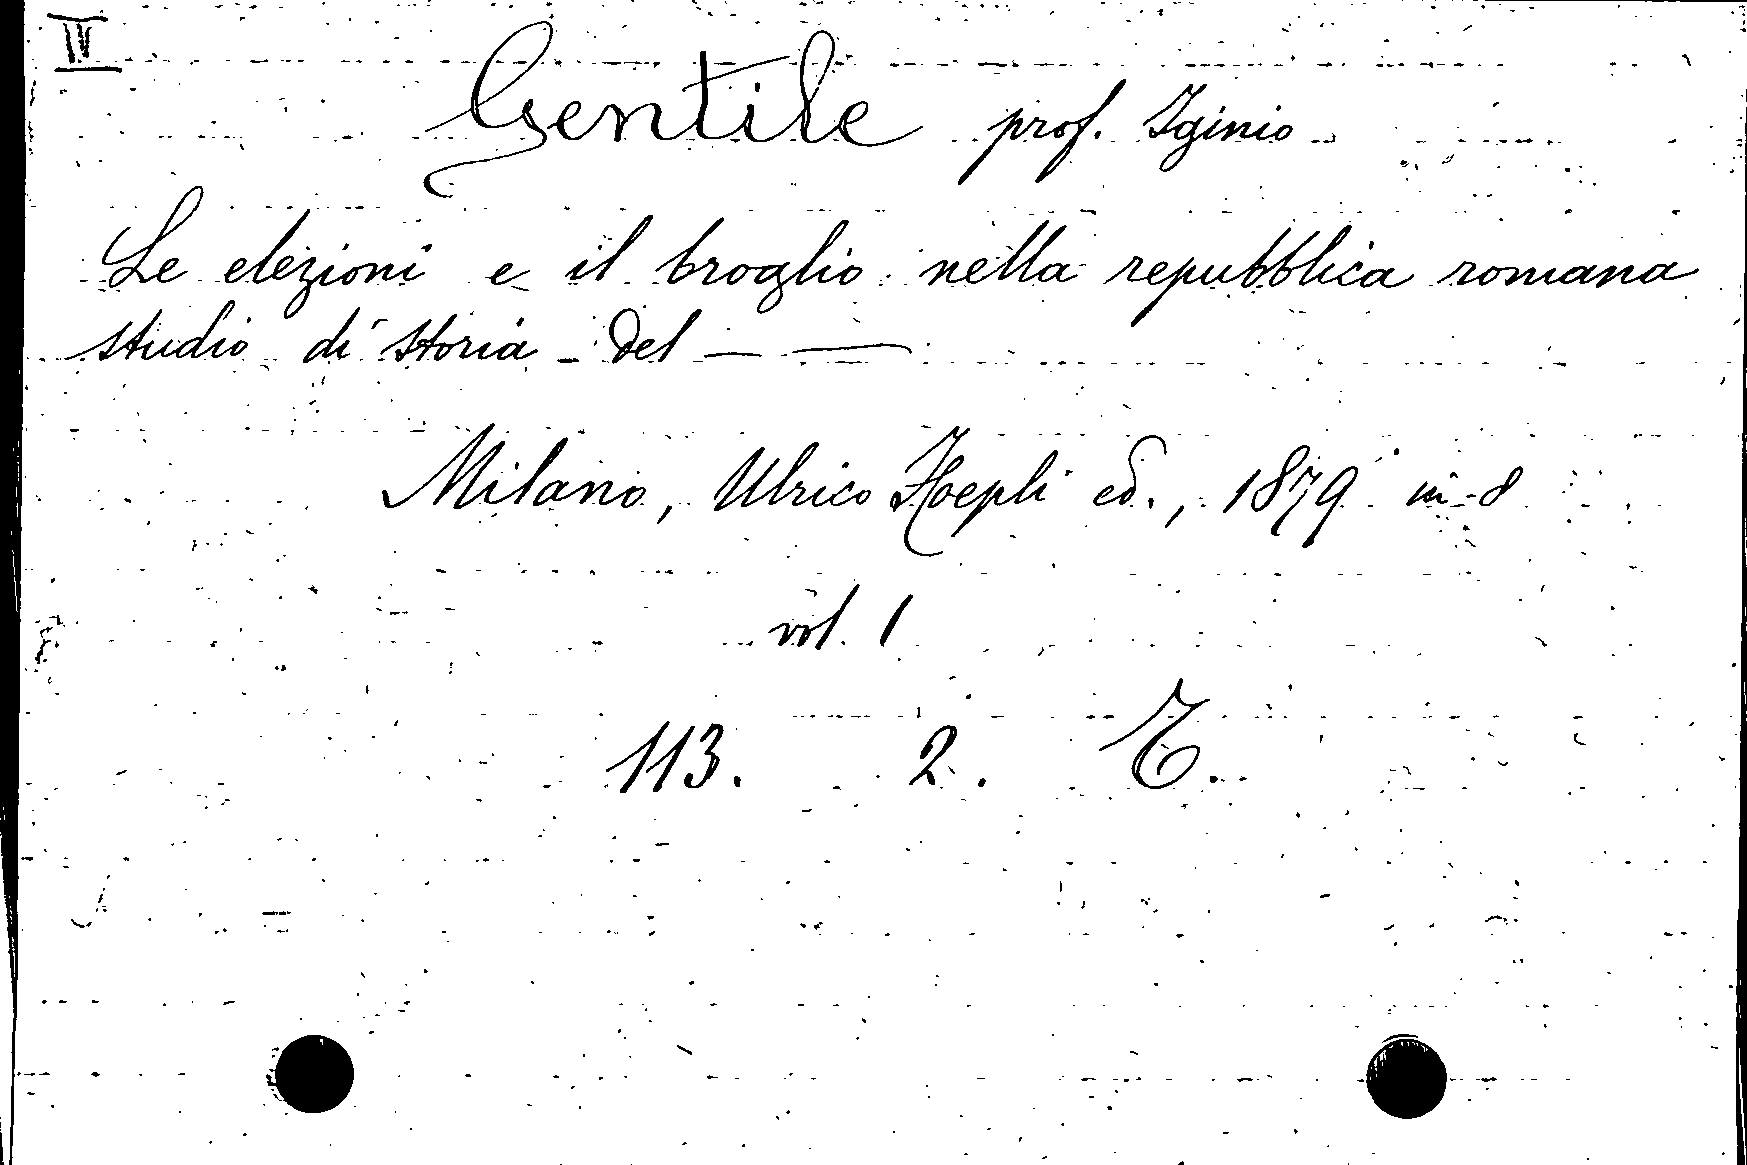 IV
Gentile prof. Iginio
Le elezioni e il broglio nella repubblica romana
studio di storia - Del — —
Milano, Ulrico Hoepli ed., 1879 in-8
vol. 1
113. 2. T.